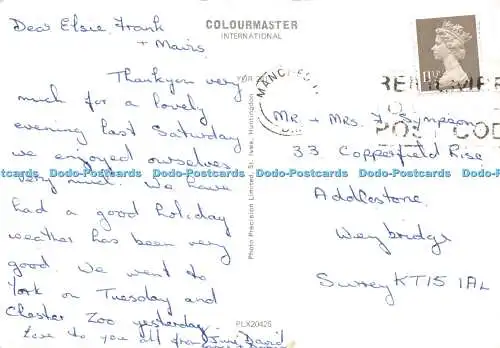 Dear Elsie, Frank
+ Mavis
Thankyou very
much for a lovely
evening last Saturday
we enjoyed ourselves
very much. We have
had a good holiday
weather has been very
good. We went to
York on Tuesday and
Chester Zoo yesterday.
Love to you all from June David
COLOURMASTER
INTERNATIONAL
Photo Precision Limited, St. Ives, Huntingdon
PLX20425
MANCHES
REMEMBER
POST COD
11½P
Mr + Mrs. F. Sympson
33 Copperfield Rise
Addlestone
Weybridge
Surrey KT15 1AL
Dodo-Postcards Dodo-Postcards Dodo-Postcards Dodo-Postcards
Dodo-Postcards Dodo-Postcards Dodo-Postcards Dodo-Postcards